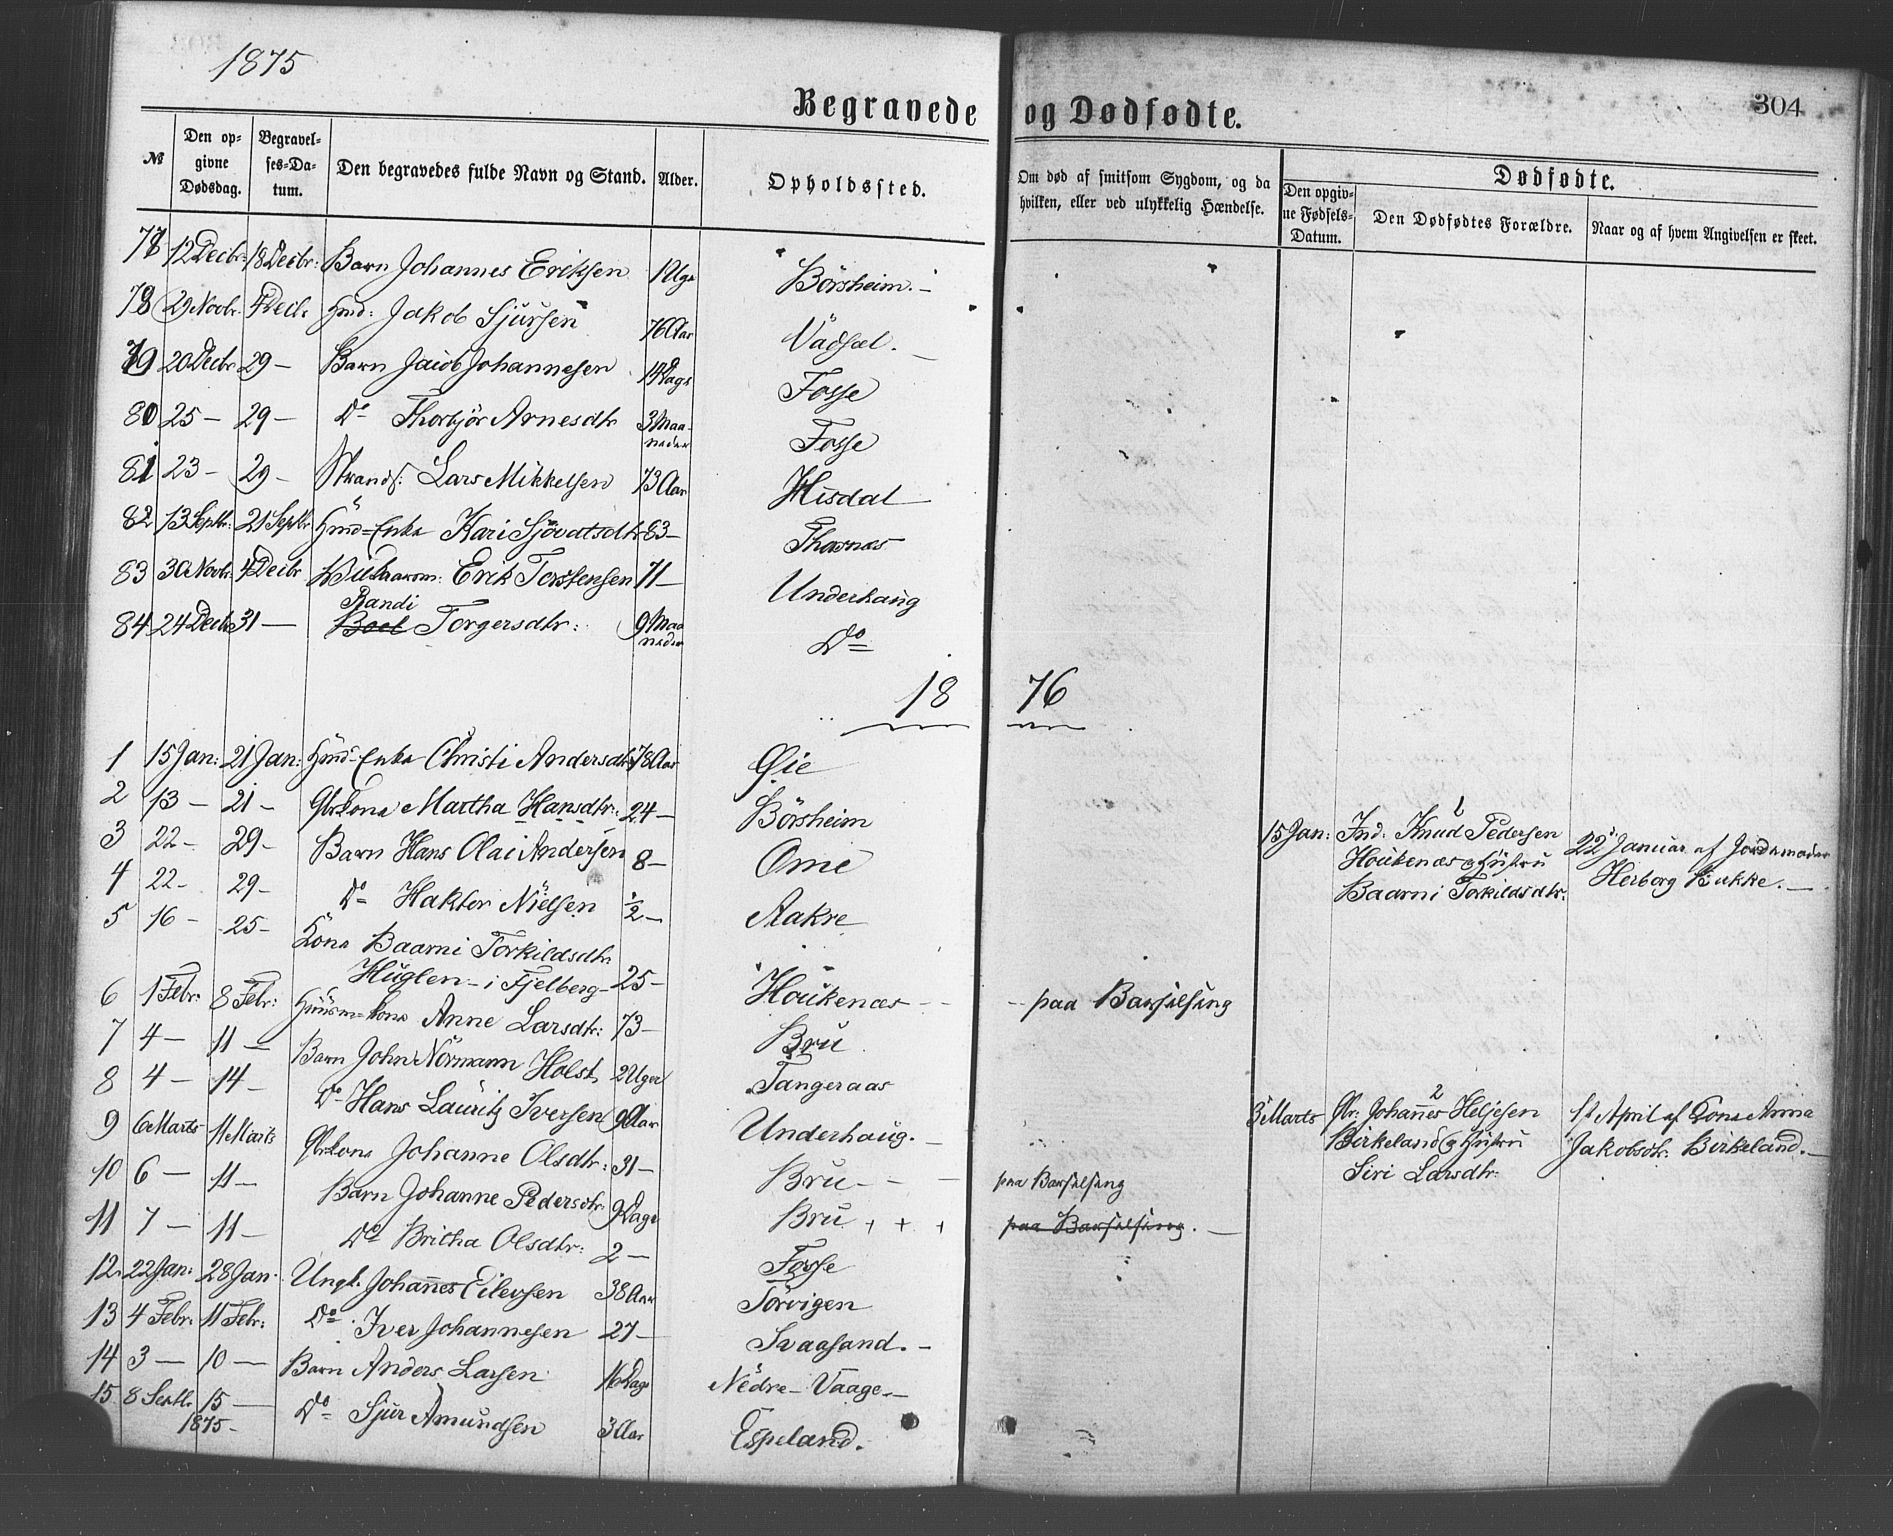 1875
Begravede og Dødfødte.
304
№
Den opgivne Dødsdag.
Begravelses-Datum.
Den begravedes fulde Navn og Stand.
Alder.
Opholdssted.
Om død af smitsom Sygdom, og da hvilken, eller ved ulykkelig Hændelse.
Dødfødte.
Den opgivne Fødsels-Datum.
Den Dødfødtes Forældre.
Naar og af hvem Angivelsen er skeet.
77 12 Decbr: 18 Decbr: Barn Johannes Eriksen 1 Uge Börsheim. -
78 29 Novbr. 4 Decb. Hmd: Jakob Sjursen 76 Aar Vadsel. -
79 20 Decbr 29 - Barn Jacob Johannesen 14 Dage Fosse
80 25 - 29 - Do Thorbjör Arnesdtr 3 Maaneder Fosse
81 23 - 29 - Strands: Lars Mikkelsen 73 Aar Hisdal
82 13 Septbr: 21 Septbr Hmd=Enke Kari Sjovatsdtr 83 - Thornæs
83 30 Novbr. 4 Decbr Erik Torstensen 71 - Underhaug
Randi
84 24 Decbr 31 - Boel Torgersdtr: 9 Maaneder Do
18 76
1 15 Jan: 21 Jan: Hmd=Enke Christi Andersdtr 78 Aar Øie
2 13 - 21 - Gbr Kona Martha Hansdtr: 24 - Börsheim
3 22 - 29 - Barn Hans Olai Andersen 8 - Ome
4 22 - 29 - Do Haktor Nielsen ½ - Aakre
1
15 Jan: Ind: Knud Pedersen
Houkenæs & Hustru
Baarni Torkildsdtr.
22 Januar af Jordemoder
Herborg Bakke. -
5 16 - 25 - Kona Baarni Torkildsdtr
Huglen - i Fjelberg - 25 - Houkenæs - - - paa Barselseng
6 1 Febr: 8 Febr: Huusm=kone Anne Larsdtr: 73 - Bru
7 4 - 11 - Barn John Normann Holst 2 Uger Tangeraas
8 4 - 14 - Do Hans Lauritz Iversen 9 Aar Underhaug. -
2
5 Marts Gbr. Johannes Heljesen
Birkeland & Hustru
Siri Larsdtr.
1st April af Kona Anna
Jakobsdtr. Birkeland. -
9 6 Marts 11 Marts Gbr Kona Johanne Olsdtr: 31 - Bru - - paa Barselseng
10 6 - 11 - Barn Johanne Pedersdtr 9 Dage Bru + + + paa Barselseng. -
11 7 - 11 - Do Britha Olsdtr: 2 - Fosse
12. 22 Jan: 28 Jan. Ungk. Johannes Eilevsen 38 Aar Törvigen
13 4 Febr: 11 Febr: Do. Iver Johannesen 27 - Svaasand. -
14 3 - 10 - Barn Anders Larsen 16 Dage Nedre - Vaage. -
15 8 Septb. 15 - Do Sjur Amundsen 3 Aar Espeland.
1875 -